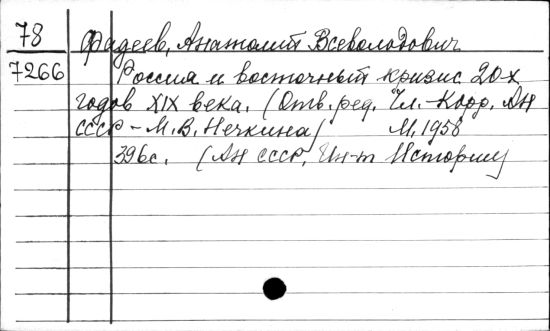 78 Фадеев, Анатолий Всеволодович
7266 Россия и восточный кризис 20х
годов XIX века. (Отв. ред. Чл.-Корр. АН
СССР - М.В. Нечкина) М, 1958
396с. (АН СССР, Ин-т Истории)